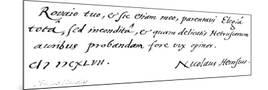 Rovario tuo, et sic etiam meo, parentavi Elegia
tota, sed incondita, et quam delicatis Hetruscorum
auribus probandam fore vix opiner.
Nicolaus Heinsius.